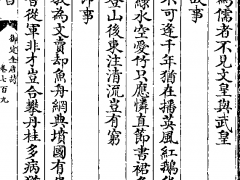 爲儒者不見文皇與武皇
故事
不可逢千年猶在播英風紅鵝
綠水空愛竹只應憐直節書裙
登山後東注清沉豈有窮
事
爲文賣却魚舟網典墳國有
從軍非才豈合攀丹桂多病
御定全唐詩
卷七百九